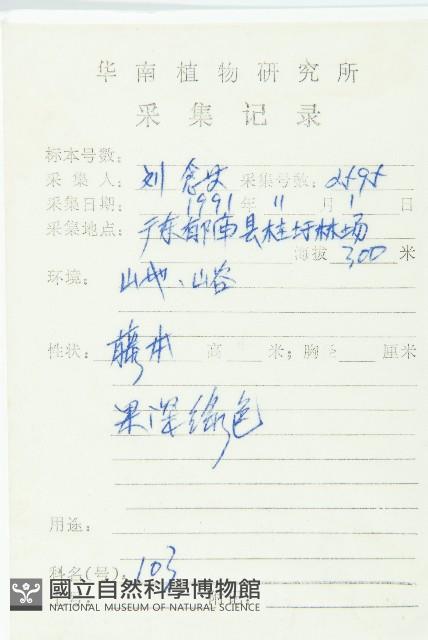 华南植物研究所
采集记录
标本号数：
采集人：刘念 采集号数：
采集日期：1991年11月1日
采集地点：广东郁南县桂圩林场
海拔 300 米
环境：山地、山谷
性状：藤本 高 米；胸 厘米
果深绿色
用途：
科名(号)：103
國立自然科學博物館
NATIONAL MUSEUM OF NATURAL SCIENCE